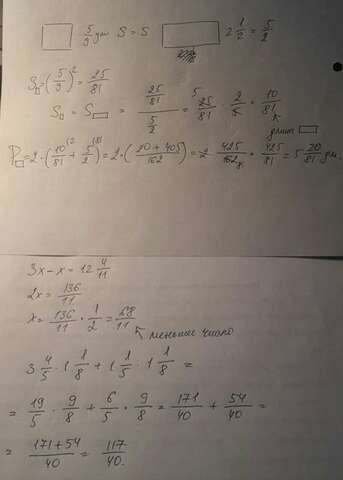 5/9 дм S = S 2 1/2 = 5/2
S□ = (5/9)² = 25/81
S□ = S▭ = 25/81 / 5/2 = 25/81 · 2/5 = 10/81
длина ▭
P▭ = 2 · (10/81 + 5/2) = 2 · (20 + 405 / 162) = 2 · 425/162 = 425/81 = 5 20/81 дм.
3x - x = 12 4/11
2x = 136/11
x = 136/11 · 1/2 = 68/11
меньшее число
3 4/5 · 1 1/8 + 1 1/5 · 1 1/8 =
= 19/5 · 9/8 + 6/5 · 9/8 = 171/40 + 54/40 =
= 171 + 54 / 40 = 117/40.